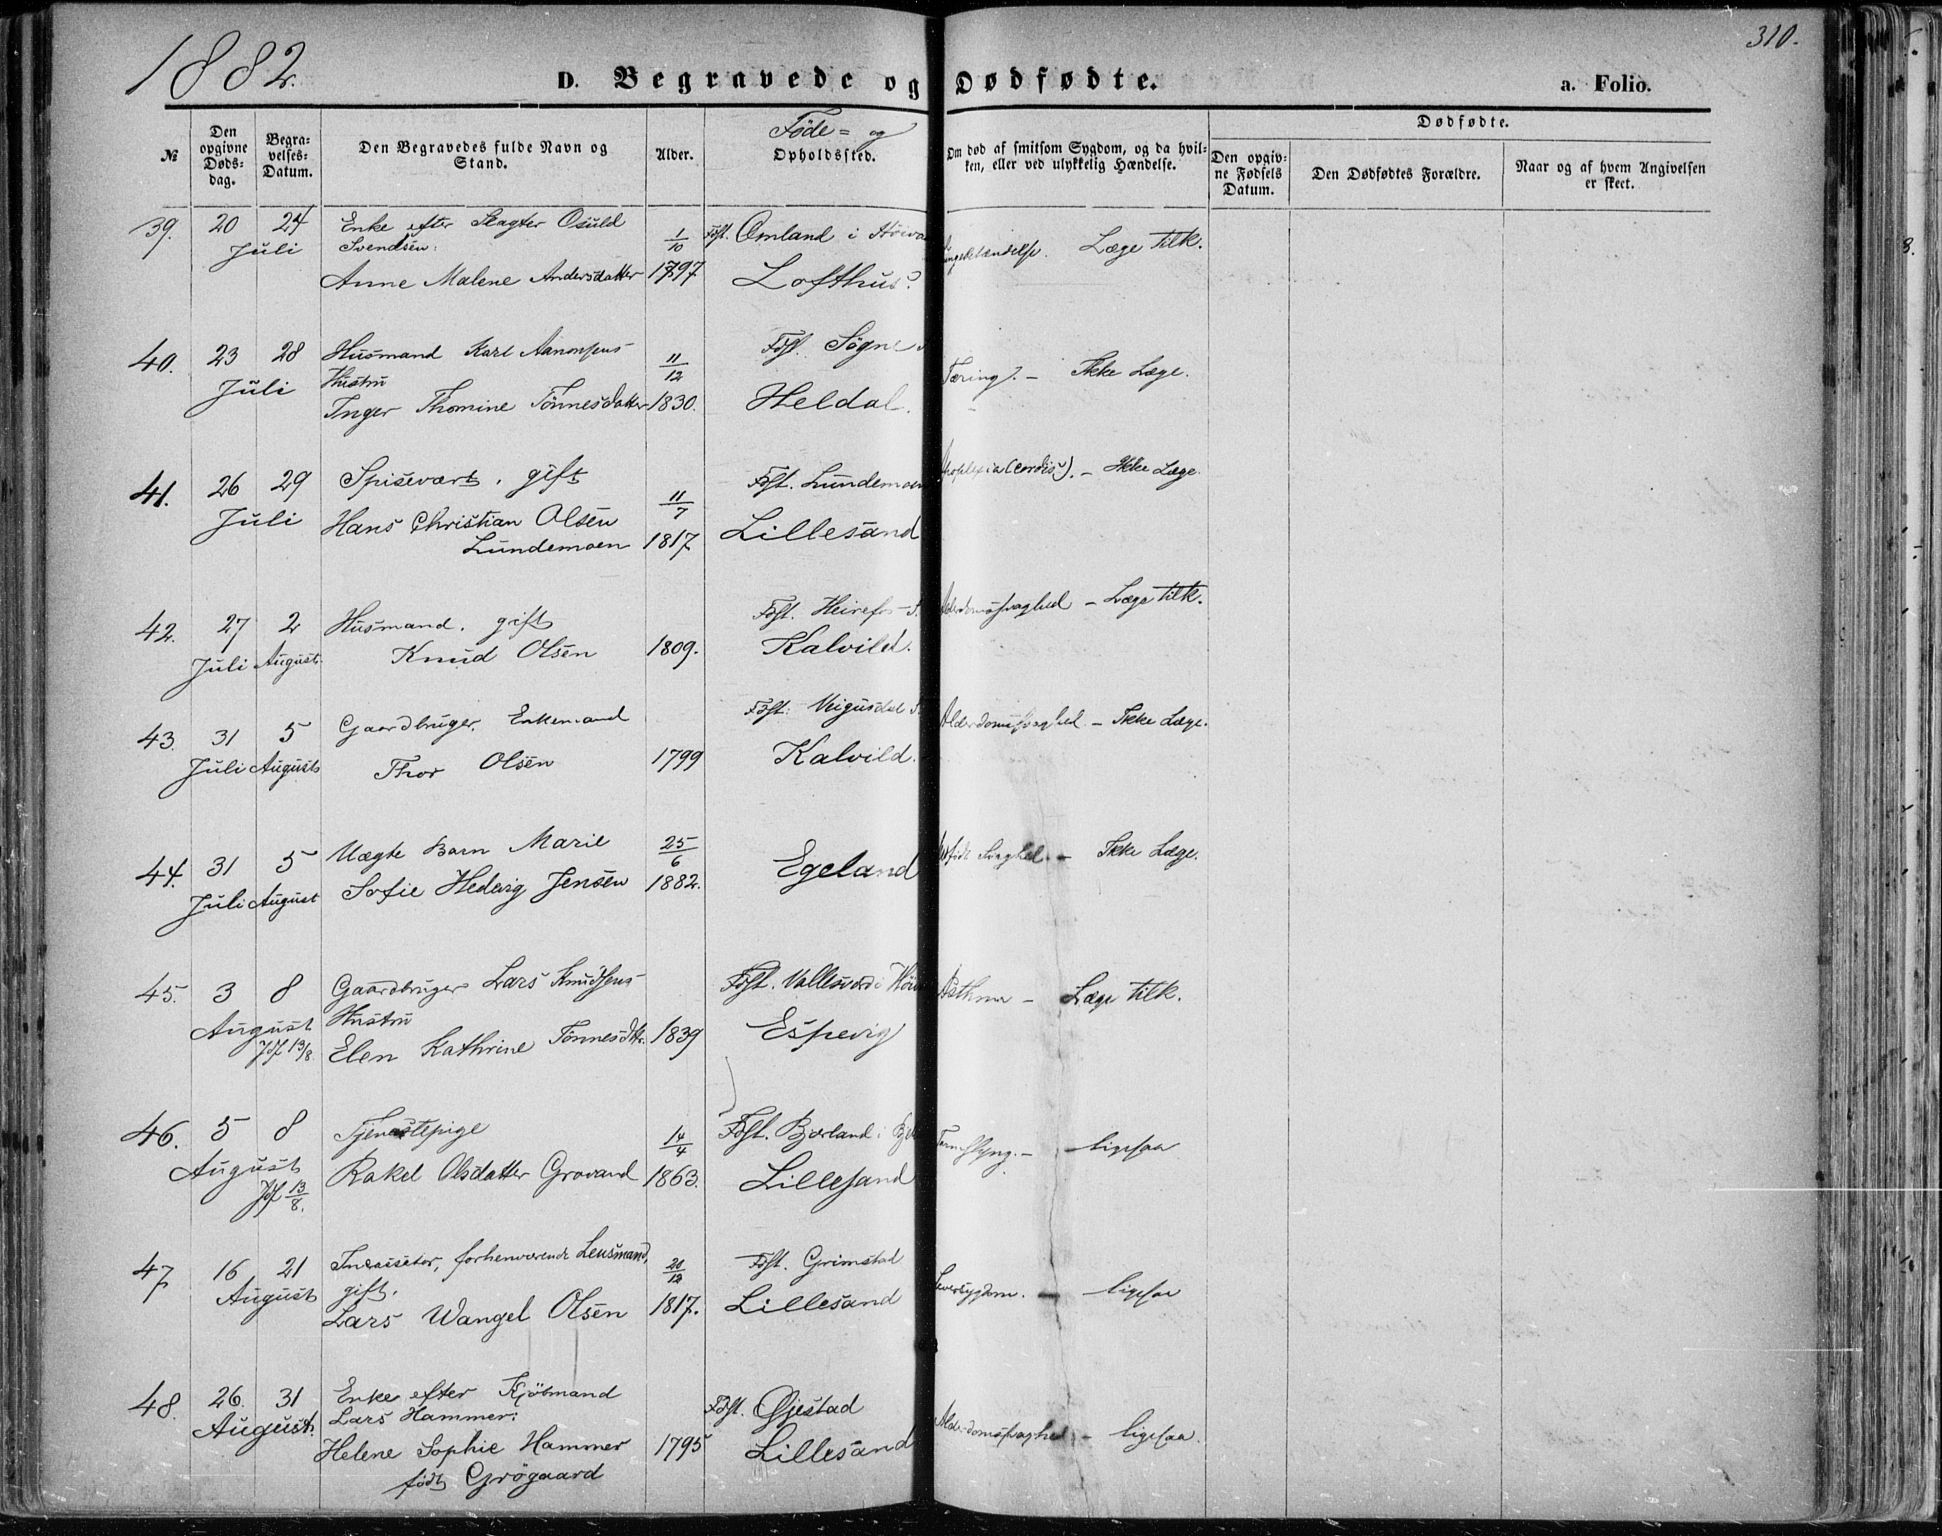 1882.
310.
D. Begravede og Dødfødte.
a. Folio.
№
Den opgivne Døds-dag.
Begra-velses-Datum.
Den Begravedes fulde Navn og Stand.
Alder.
Føde- og
Opholdssted.
Om død af smitsom Sygdom, og da hvil-ken, eller ved ulykkelig Hændelse.
Dødfødte.
Den opgiv-ne Fødsels Datum.
Den Dødfødtes Forældre.
Naar og af hvem Angivelsen er skeet.
39. 20 24 Enke efter Slagter Osuld 1/10 Fdst. Omland i
Juli Svendsen: Læge tilk.
Anne Malene Andersdatter 1797 Lofthus.
40. 23 28 Husmand Karl Aanonsens 11/12 Fdst. Søgne
Juli Hustru Tæring?. – Ikke Læge.
Inger Thomine Tönnesdatter 1830. Heldal.
41. 26 29 Spisevært, gift 11/7 Fdst. Lundemoen Apoplexia (cordis). – Ikke Læge.
Juli Hans Christian Olsen 1817 Lillesand
Lundemoen
42. 27 2 Husmand, gift Fdst. Heirefos Alderdomssvaghed – Læge tilk.
Juli August Knud Olsen 1809. Kalvild.
43. 31 5 Gaardbruger, Enkemand Fdst. Veigusdal Alderdomssvaghed – Ikke Læge.
Juli August Thor Olsen 1799 Kalvild.
44. 31 5 Uægte Barn Marie 25/6 Egeland Svaghed. – Ikke Læge.
Juli August Sofie Hedvig Jensen 1882.
45. 3 8 Gaardbruger Lars Knudsens Fdst. Vallesverd i Asthma – Læge tilk.
August Hustru
Jdf 13/8. Elen Kathrine Tönnesdtr. 1839 Espevig
46. 5 8 Tjenestepige 14/4 Fdst. Bjørland i – ligesaa
August Rakel Olsdatter Grovand 1863. Lillesand
Jdf 13/8.
47 16 21 Incassator, forhenværende Lensmand, 20/12 Fdst. Grimstad
August gift. Leversygdom. – ligesaa
Lars Wangel Olsen 1817. Lillesand
48. 26. 31 Enke efter Kjöbmand Fdst. Øjestad
August. Lars Hammer: Alderdomssvaghed – ligesaa.
Helene Sophie Hammer 1795 Lillesand
født Grögaard